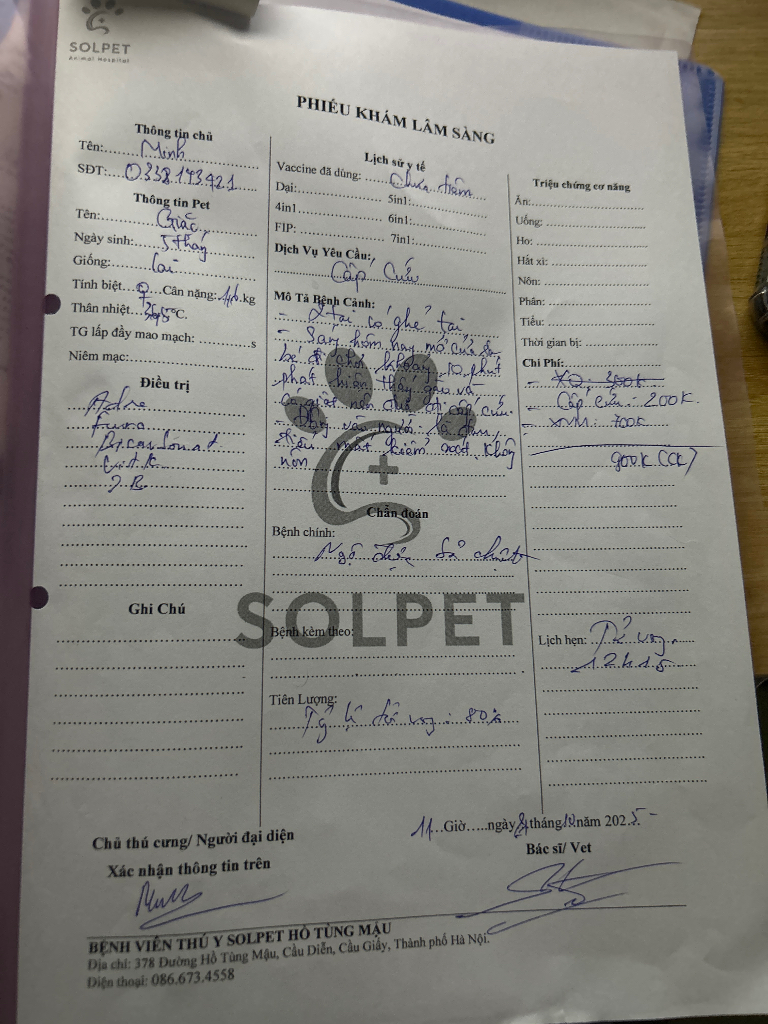 SOLPET
Animal Hospital
PHIẾU KHÁM LÂM SÀNG
Thông tin chủ
Tên: Minh
SĐT: 0338.193.921
Thông tin Pet
Tên:
Ngày sinh: 5 tháng
Giống: lai
Tính biệt ♀ Cân nặng: kg
Thân nhiệt: °C.
TG lấp đầy mao mạch: s
Niêm mạc:
Điều trị
Adre
Furo
Ghi Chú
Lịch sử y tế
Vaccine đã dùng: Chưa tiêm
Dại: 5in1:
4in1 6in1:
FIP: 7in1:
Dịch Vụ Yêu Cầu:
Cấp cứu
Mô Tả Bệnh Cảnh:
- 2 tai có ghẻ tai
- Sáng hôm nay mở cửa
bé đi chơi khoảng 10 phút
phát hiện thấy
co giật nên đưa đi cấp cứu
mất kiểm soát, không
nôn
Chẩn đoán
Bệnh chính:
Ngộ độc bả chuột
SOLPET
Bệnh kèm theo:
Tiên Lượng:
Tỷ lệ tử vong: 80%
Triệu chứng cơ năng
Ăn:
Uống:
Ho:
Hắt xì:
Nôn:
Phân:
Tiểu:
Thời gian bị:
Chi Phí:
- Cấp cứu: 200K
- XNM: 700K
900K (CK)
Lịch hẹn: Tử vong.
12h15
11 Giờ ngày tháng năm 2025
Chủ thú cưng/ Người đại diện
Xác nhận thông tin trên
Bác sĩ/ Vet
BỆNH VIỆN THÚ Y SOLPET HỒ TÙNG MẬU
Địa chỉ: 378 Đường Hồ Tùng Mậu, Cầu Diễn, Cầu Giấy, Thành phố Hà Nội.
Điện thoại: 086.673.4558